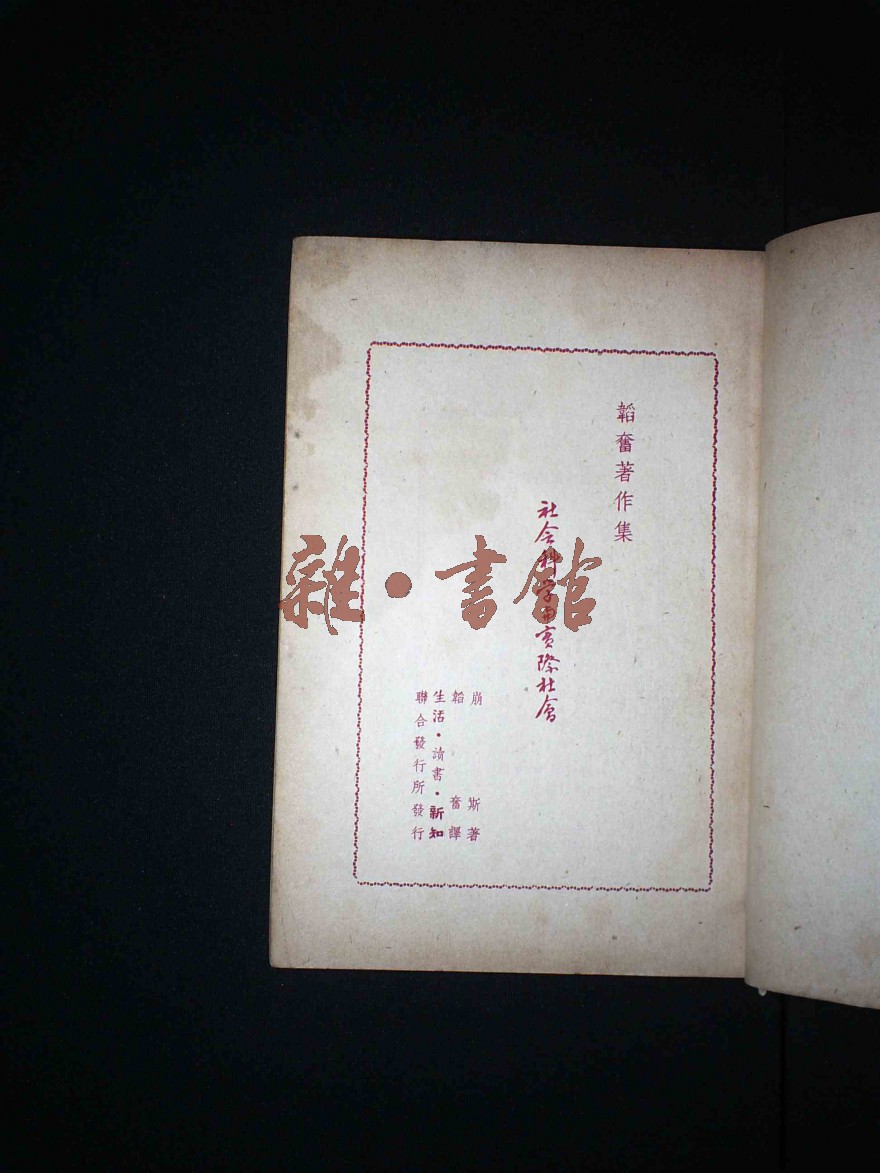 韜奮著作集
社会科学与实際社會
崩斯著
韜奮譯
生活·讀書·新知
聯合發行所發行
雜·書館